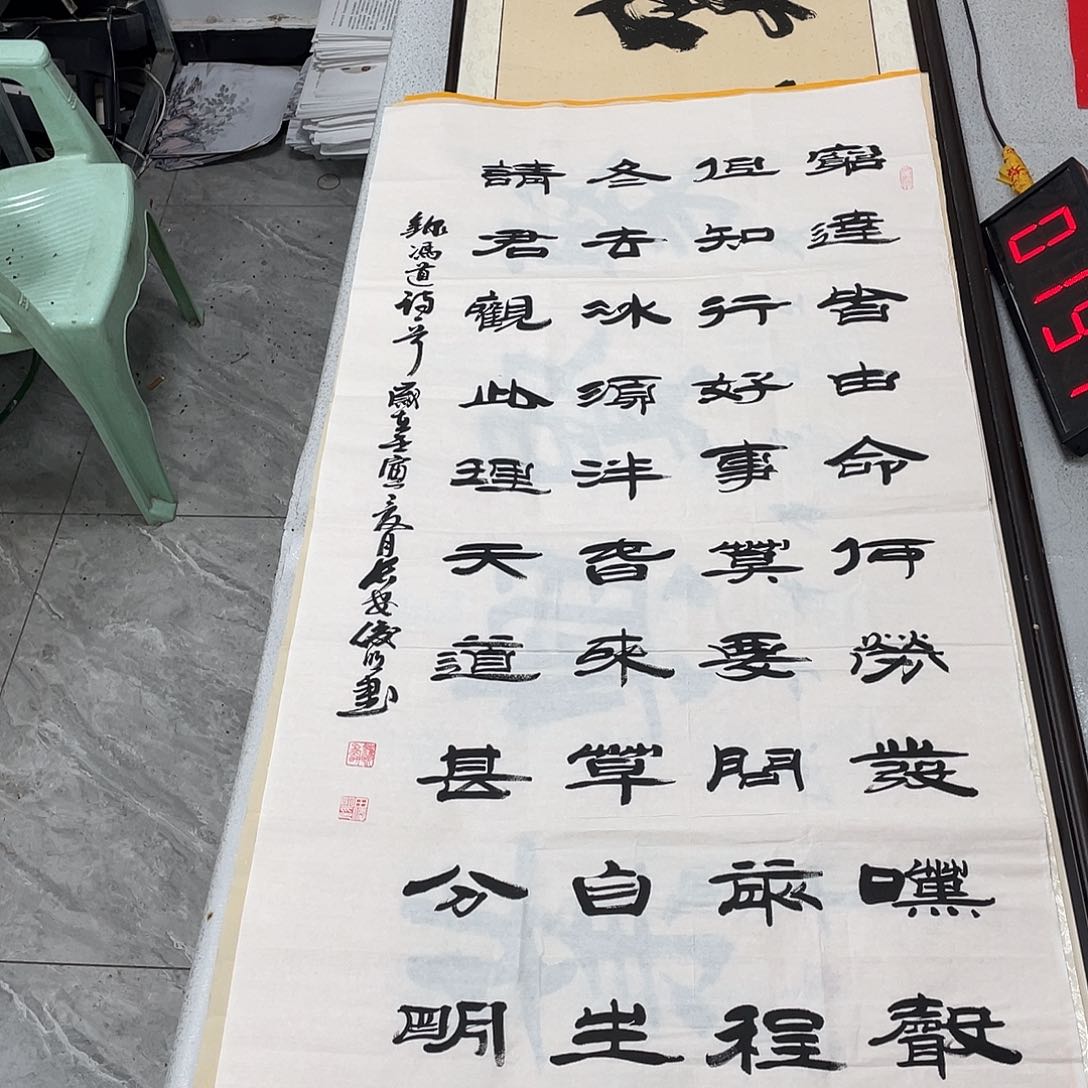 窮達皆由命何勞發嘆聲
但知行好事莫要問前程
冬去冰源泮春來草自生
請君觀此理天道甚分明
錄馮道詩一首歲在壬寅之夏月長安俊明書